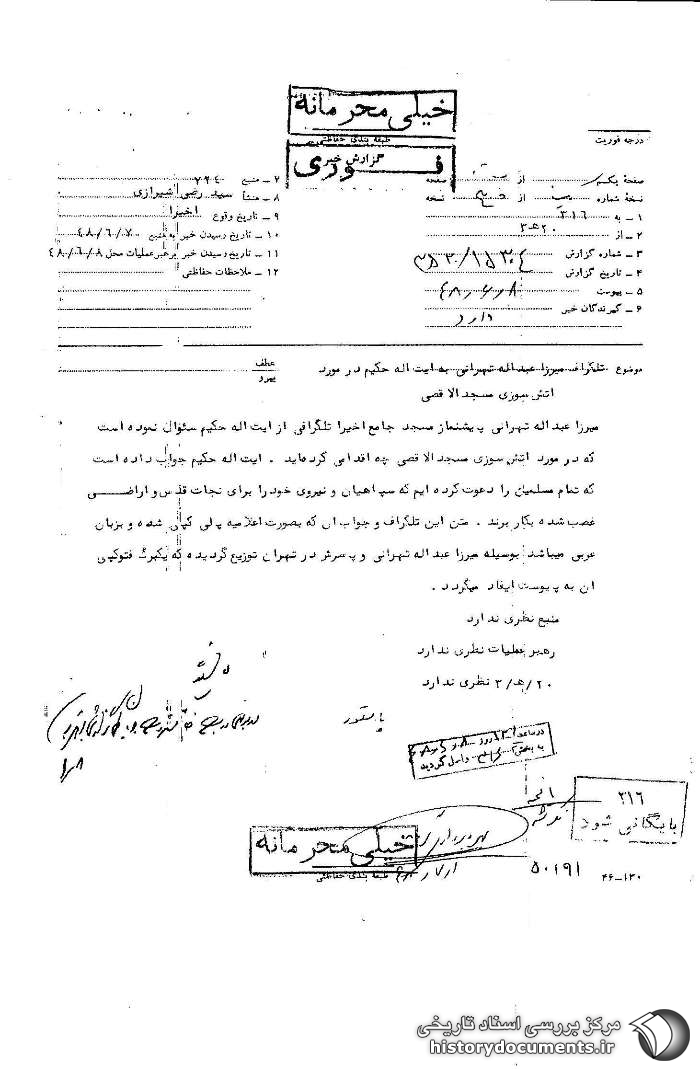 خیلی محرمانه
طبقه بندی حفاظتی
گزارش خبر
فوری
درجه فوریت
صفحه یکم از صفحه
نسخه شماره از نسخه
۱ ـ به ۳۱۶
۲ ـ از ۲۰ هـ ۳
۳ ـ شماره گزارش
۴ ـ تاریخ گزارش ۴۸٫۶٫۸
۵ ـ پیوست
۶ ـ گیرندگان خبر
دارد
۷ ـ منبع ۷۲۴
۸ ـ منشأ سید رضی شیرازی
۹ ـ تاریخ وقوع اخیرا
۱۰ ـ تاریخ رسیدن خبر به منبع ۴۸/۶/۷
۱۱ ـ تاریخ رسیدن خبر برهبر عملیات محل ۴۸/۰۶/۰۸
۱۲ ـ ملاحظات حفاظتی
موضوع تلگراف میرزا عبداله تهرانی به ایت اله حکیم در مورد
اتش سوزی مسجد الاقصی
عطف
پیرو
میرزا عبداله تهرانی پیشنماز مسجد جامع اخیرا تلگرافی از ایت اله حکیم سئوال نموده است
که در مورد اتش سوزی مسجد الاقصی چه اقدامی کرده‌اید . ایت اله حکیم جواب داده است
که تمام مسلمین را دعوت کرده ایم که سپاهیان و نیروی خود را برای نجات قدس و اراضی
غصب شده بکار برند . متن این تلگراف و جواب ان که بصورت اعلامیه پلی کپی شده و بزبان
عربی میباشد بوسیله میرزا عبداله تهرانی و پسرش در تهران توزیع گردیده که یکبرگ فتوکپی
ان به پیوست ایفاد میگردد .
منبع نظری ندارد
رهبر عملیات نظری ندارد
۲۰/هـ/۳ نظری ندارد
در ساعت روز
به بخش واصل گردید
۳۱۶
بایگانی شود
خیلی محرمانه
طبقه بندی حفاظتی
۵۰۱۹۱
۴۶-۱۳۰
مرکز بررسی اسناد تاریخی
historydocuments.ir